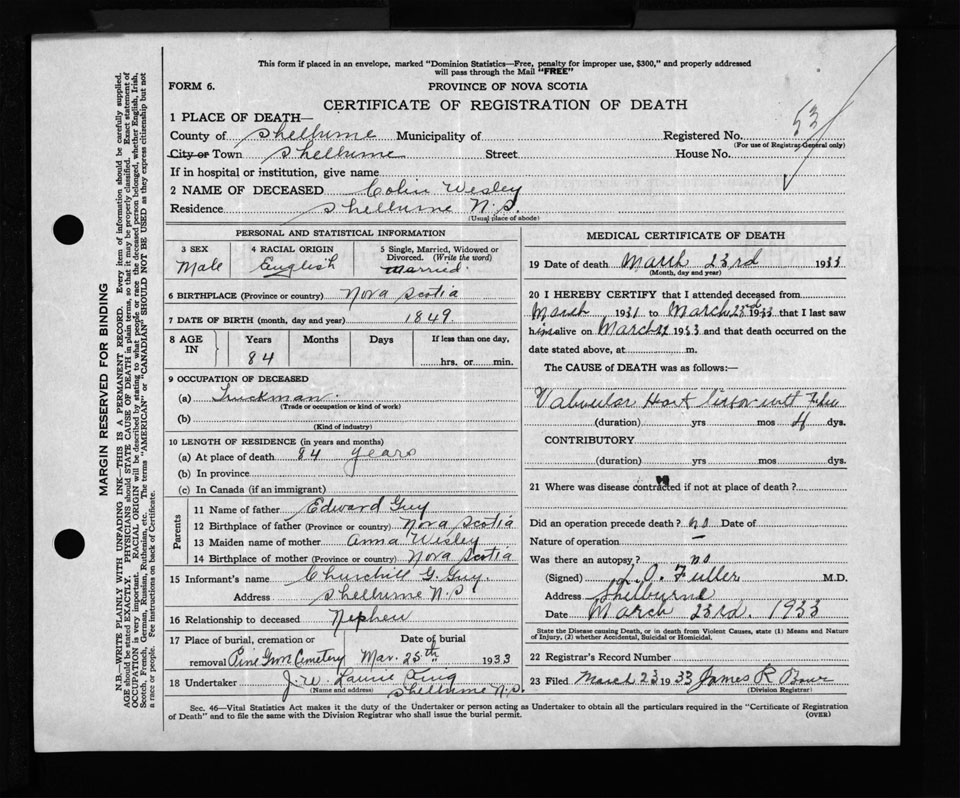 This form if placed in an envelope, marked "Dominion Statistics—Free, penalty for improper use, $300," and properly addressed
will pass through the Mail "FREE"
FORM 6.
PROVINCE OF NOVA SCOTIA
CERTIFICATE OF REGISTRATION OF DEATH
1 PLACE OF DEATH—
County of Shelburne Municipality of Registered No. 53
(For use of Registrar General only)
City or Town Shelburne Street House No.
If in hospital or institution, give name
2 NAME OF DECEASED Colin Wesley
Residence Shelburne N.S.
(Usual place of abode)
PERSONAL AND STATISTICAL INFORMATION
3 SEX 4 RACIAL ORIGIN 5 Single, Married, Widowed or
Divorced. (Write the word)
Male English Married.
6 BIRTHPLACE (Province or country) Nova Scotia
7 DATE OF BIRTH (month, day and year) 1849.
8 AGE IN Years Months Days If less than one day,
84 hrs. or min.
9 OCCUPATION OF DECEASED
(a) Truckman.
(Trade or occupation or kind of work)
(b)
(Kind of industry)
10 LENGTH OF RESIDENCE (in years and months)
(a) At place of death 84 years
(b) In province
(c) In Canada (if an immigrant)
Parents
11 Name of father Edward Guy
12 Birthplace of father (Province or country) Nova Scotia
13 Maiden name of mother Anna Wesley
14 Birthplace of mother (Province or country) Nova Scotia
15 Informant's name Churchill G. Guy.
Address Shelburne N.S
16 Relationship to deceased Nephew
17 Place of burial, cremation or Date of burial
removal Pine Grove Cemetery Mar. 25th 1933
18 Undertaker J.W. Laurie King
(Name and address) Shelburne N.S.
MEDICAL CERTIFICATE OF DEATH
19 Date of death March 23rd 1933
(Month, day and year)
20 I HEREBY CERTIFY that I attended deceased from
March, 1931 to March 23rd 1933 that I last saw
him alive on March 22 1933 and that death occurred on the
date stated above, at m.
The CAUSE of DEATH was as follows:—
Valvular Heart
(duration) yrs mos 4 dys.
CONTRIBUTORY
(duration) yrs mos dys.
21 Where was disease contracted if not at place of death?
Did an operation precede death? no Date of
Nature of operation —
Was there an autopsy? no
(Signed) L.O. Fuller M.D.
Address Shelburne
Date March 23rd. 1933
State the Disease causing Death, or in death from Violent Causes, state (1) Means and Nature
of Injury, (2) whether Accidental, Suicidal or Homicidal.
22 Registrar's Record Number
23 Filed March 23 1933 James R Bower
(Division Registrar)
Sec. 46—Vital Statistics Act makes it the duty of the Undertaker or person acting as Undertaker to obtain all the particulars required in the "Certificate of Registration
of Death" and to file the same with the Division Registrar who shall issue the burial permit.
(OVER)
MARGIN RESERVED FOR BINDING
N.B.—WRITE PLAINLY WITH UNFADING INK—THIS IS A PERMANENT RECORD. Every item of information should be carefully supplied.
AGE should be stated EXACTLY. PHYSICIANS should STATE CAUSE OF DEATH in plain terms, so that it may be properly classified. Exact statement of
OCCUPATION is very important. RACIAL ORIGIN will be described by stating to what people or race the deceased person belonged, whether English, Irish,
Scotch, French, German, Russian, Ruthenian, etc. The terms "AMERICAN" or "CANADIAN" SHOULD NOT BE USED as they express citizenship but not
a race or people. See instructions on back of Certificate.